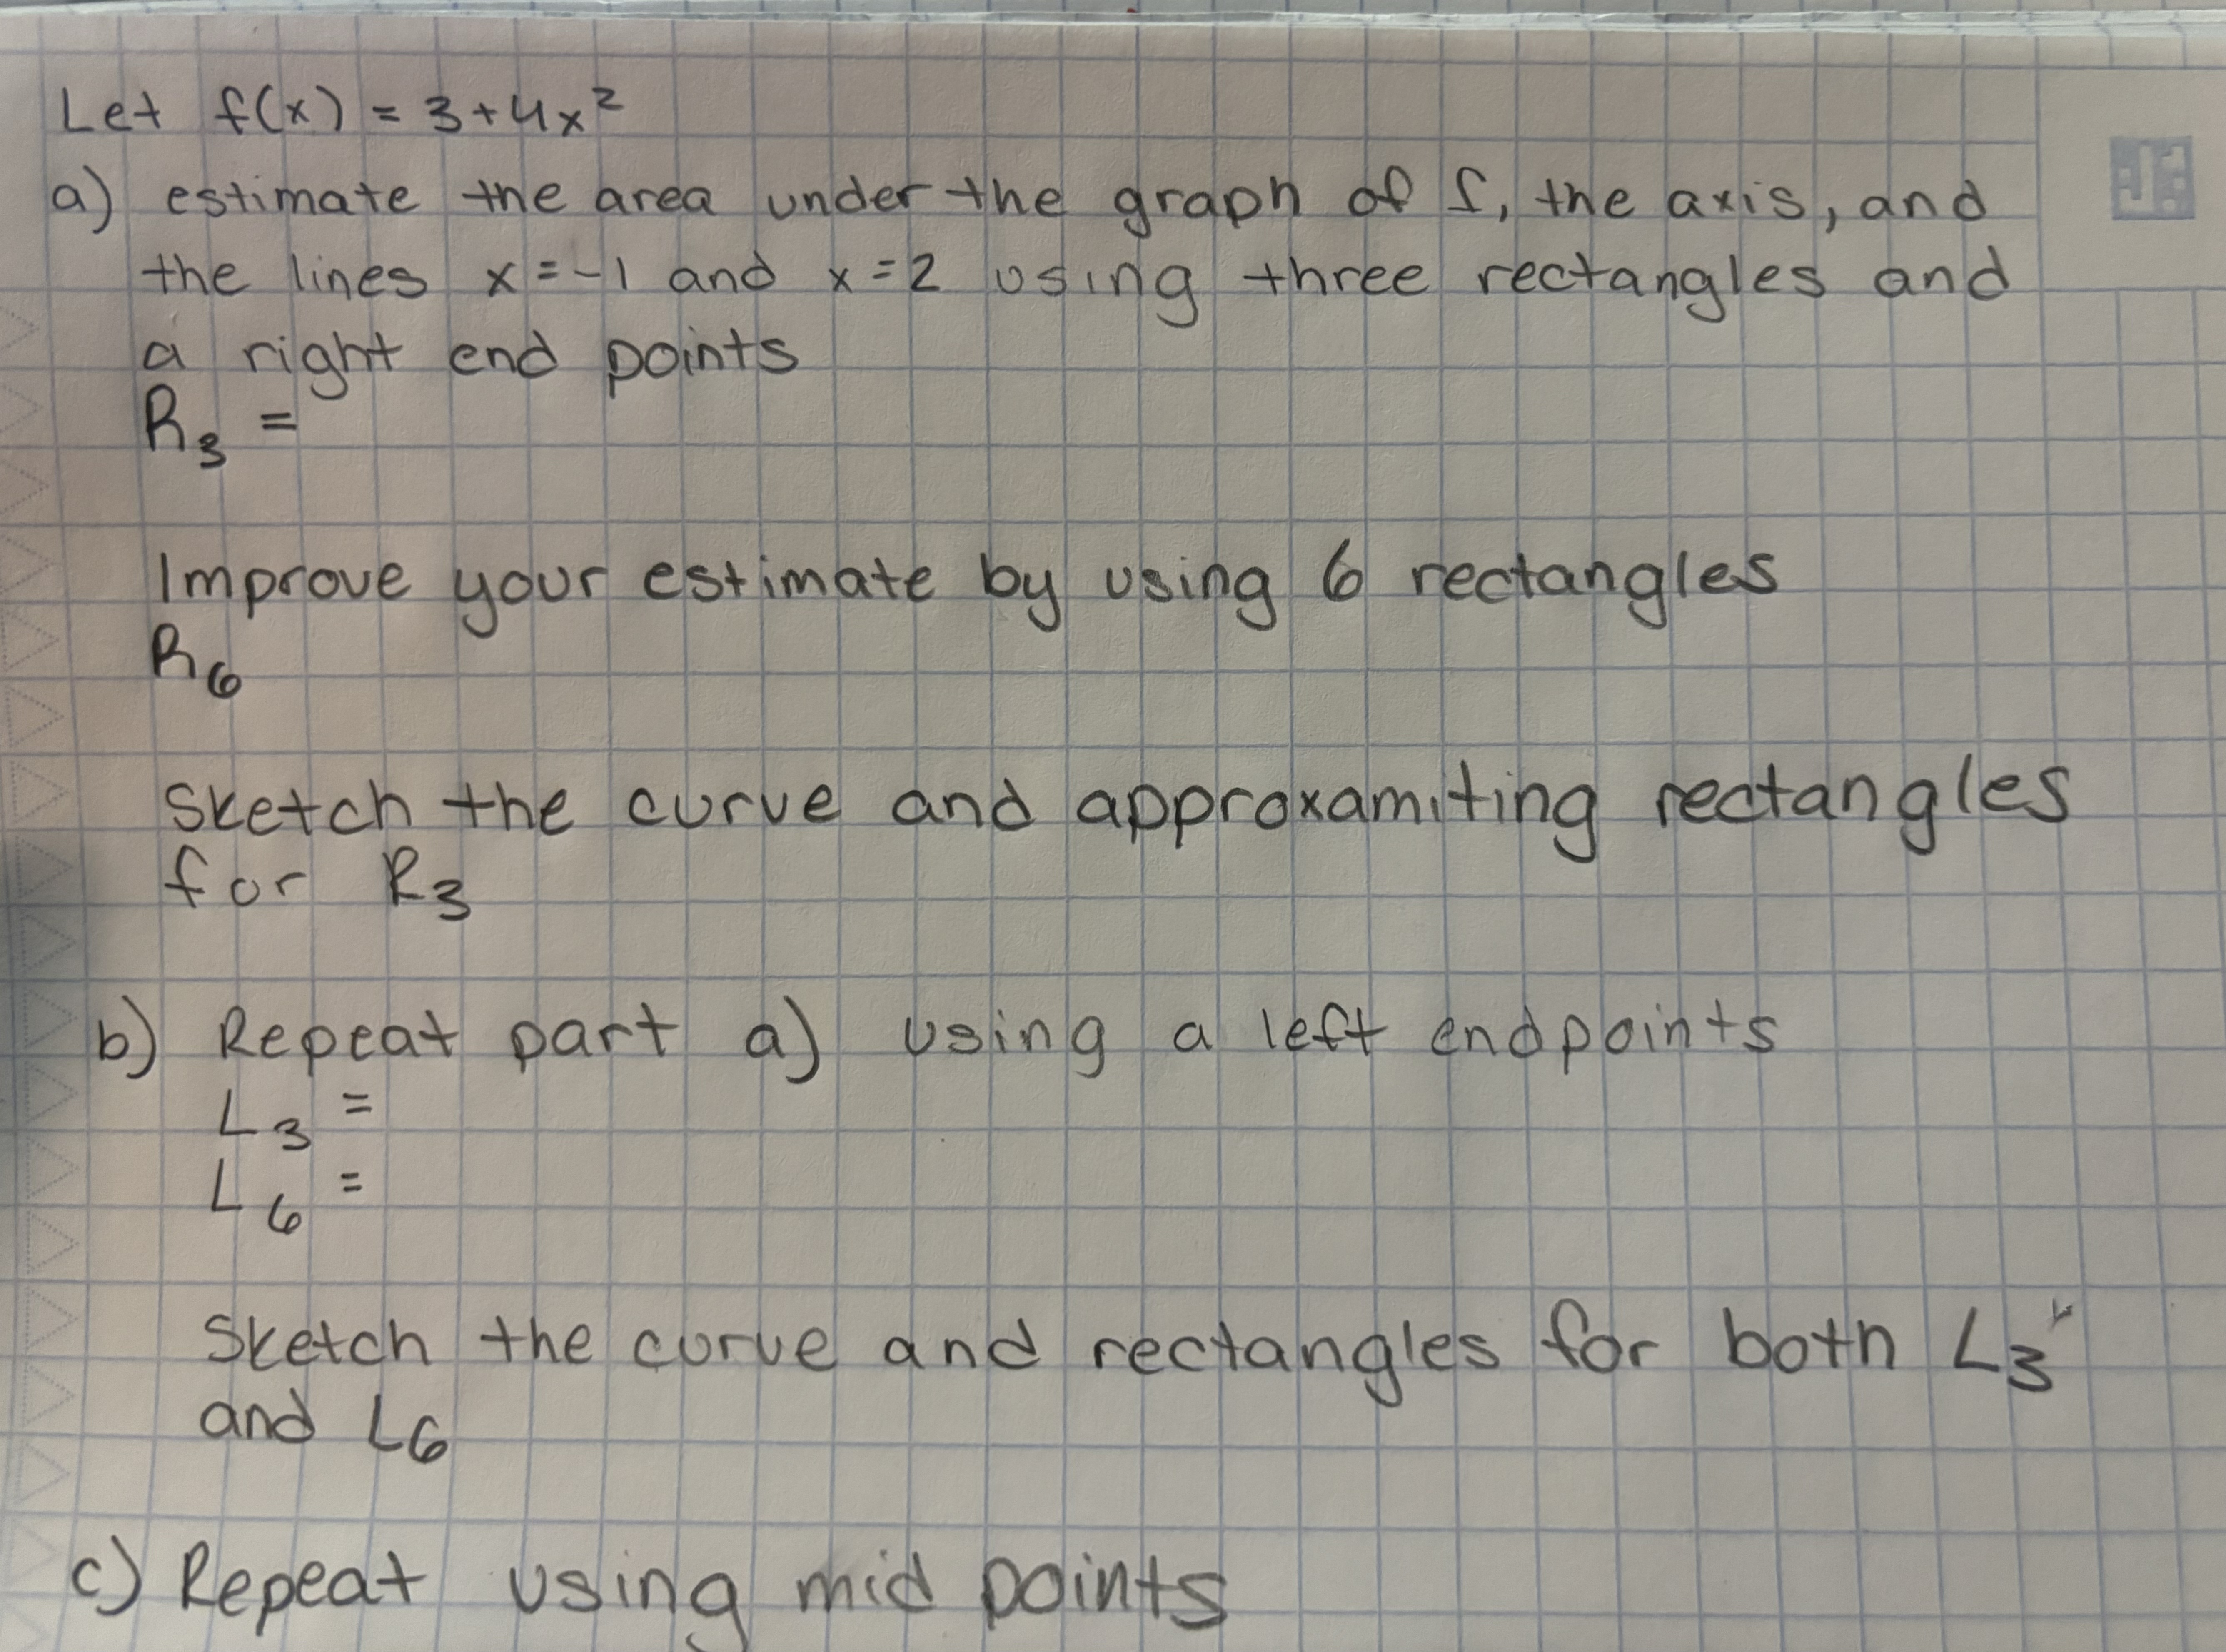 Let f(x) = 3+4x²
a) estimate the area under the graph of f, the axis, and
the lines x=-1 and x=2 using three rectangles and
a right end points
R₃ =
Improve your estimate by using 6 rectangles
R₆
Sketch the curve and approxamiting rectangles
for R₃
b) Repeat part a) using a left endpoints
L₃ =
L₆ =
Sketch the curve and rectangles for both L₃
and L₆
c) Repeat using mid points